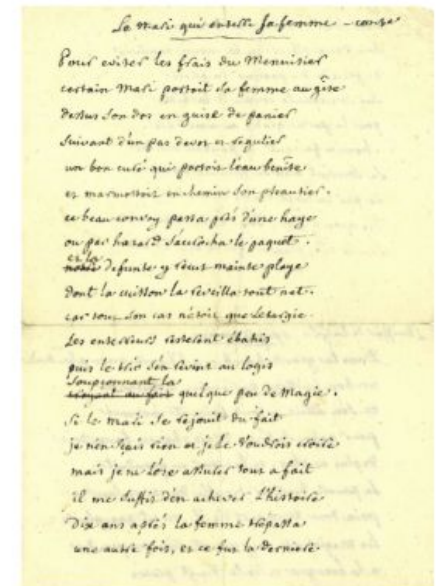 Le Mari qui enselli sa femme - conte
Pour eviter les frais du Menuisier
certain Mari portoit sa femme au gîte
dessus son dos en guise de panier
suivant d'un pas devot et regulier
un bon curé qui portoit l'eau benîte
et marmottoit en chemin son pseautier.
ce beau convoy passa près d'une haye
ou par hazard s'accrocha le paquet.
et la
notre defunte y reçut mainte playe
dont la cuisson la reveilla tout net.
car tout son cas n'étoit que letargie.
les enterreurs resterent ébahis
puis le trio s'en revint au logis
soupçonnant la
croyant au fait quelque peu de Magie.
si le mari se rejouit du fait
je n'en sçais rien et je le voudrois croire
mais je ne l'ose assurer tout a fait
il me suffit d'en achever L'histoire
Dix ans après la femme trepassa
une autre fois, et ce fut la derniere